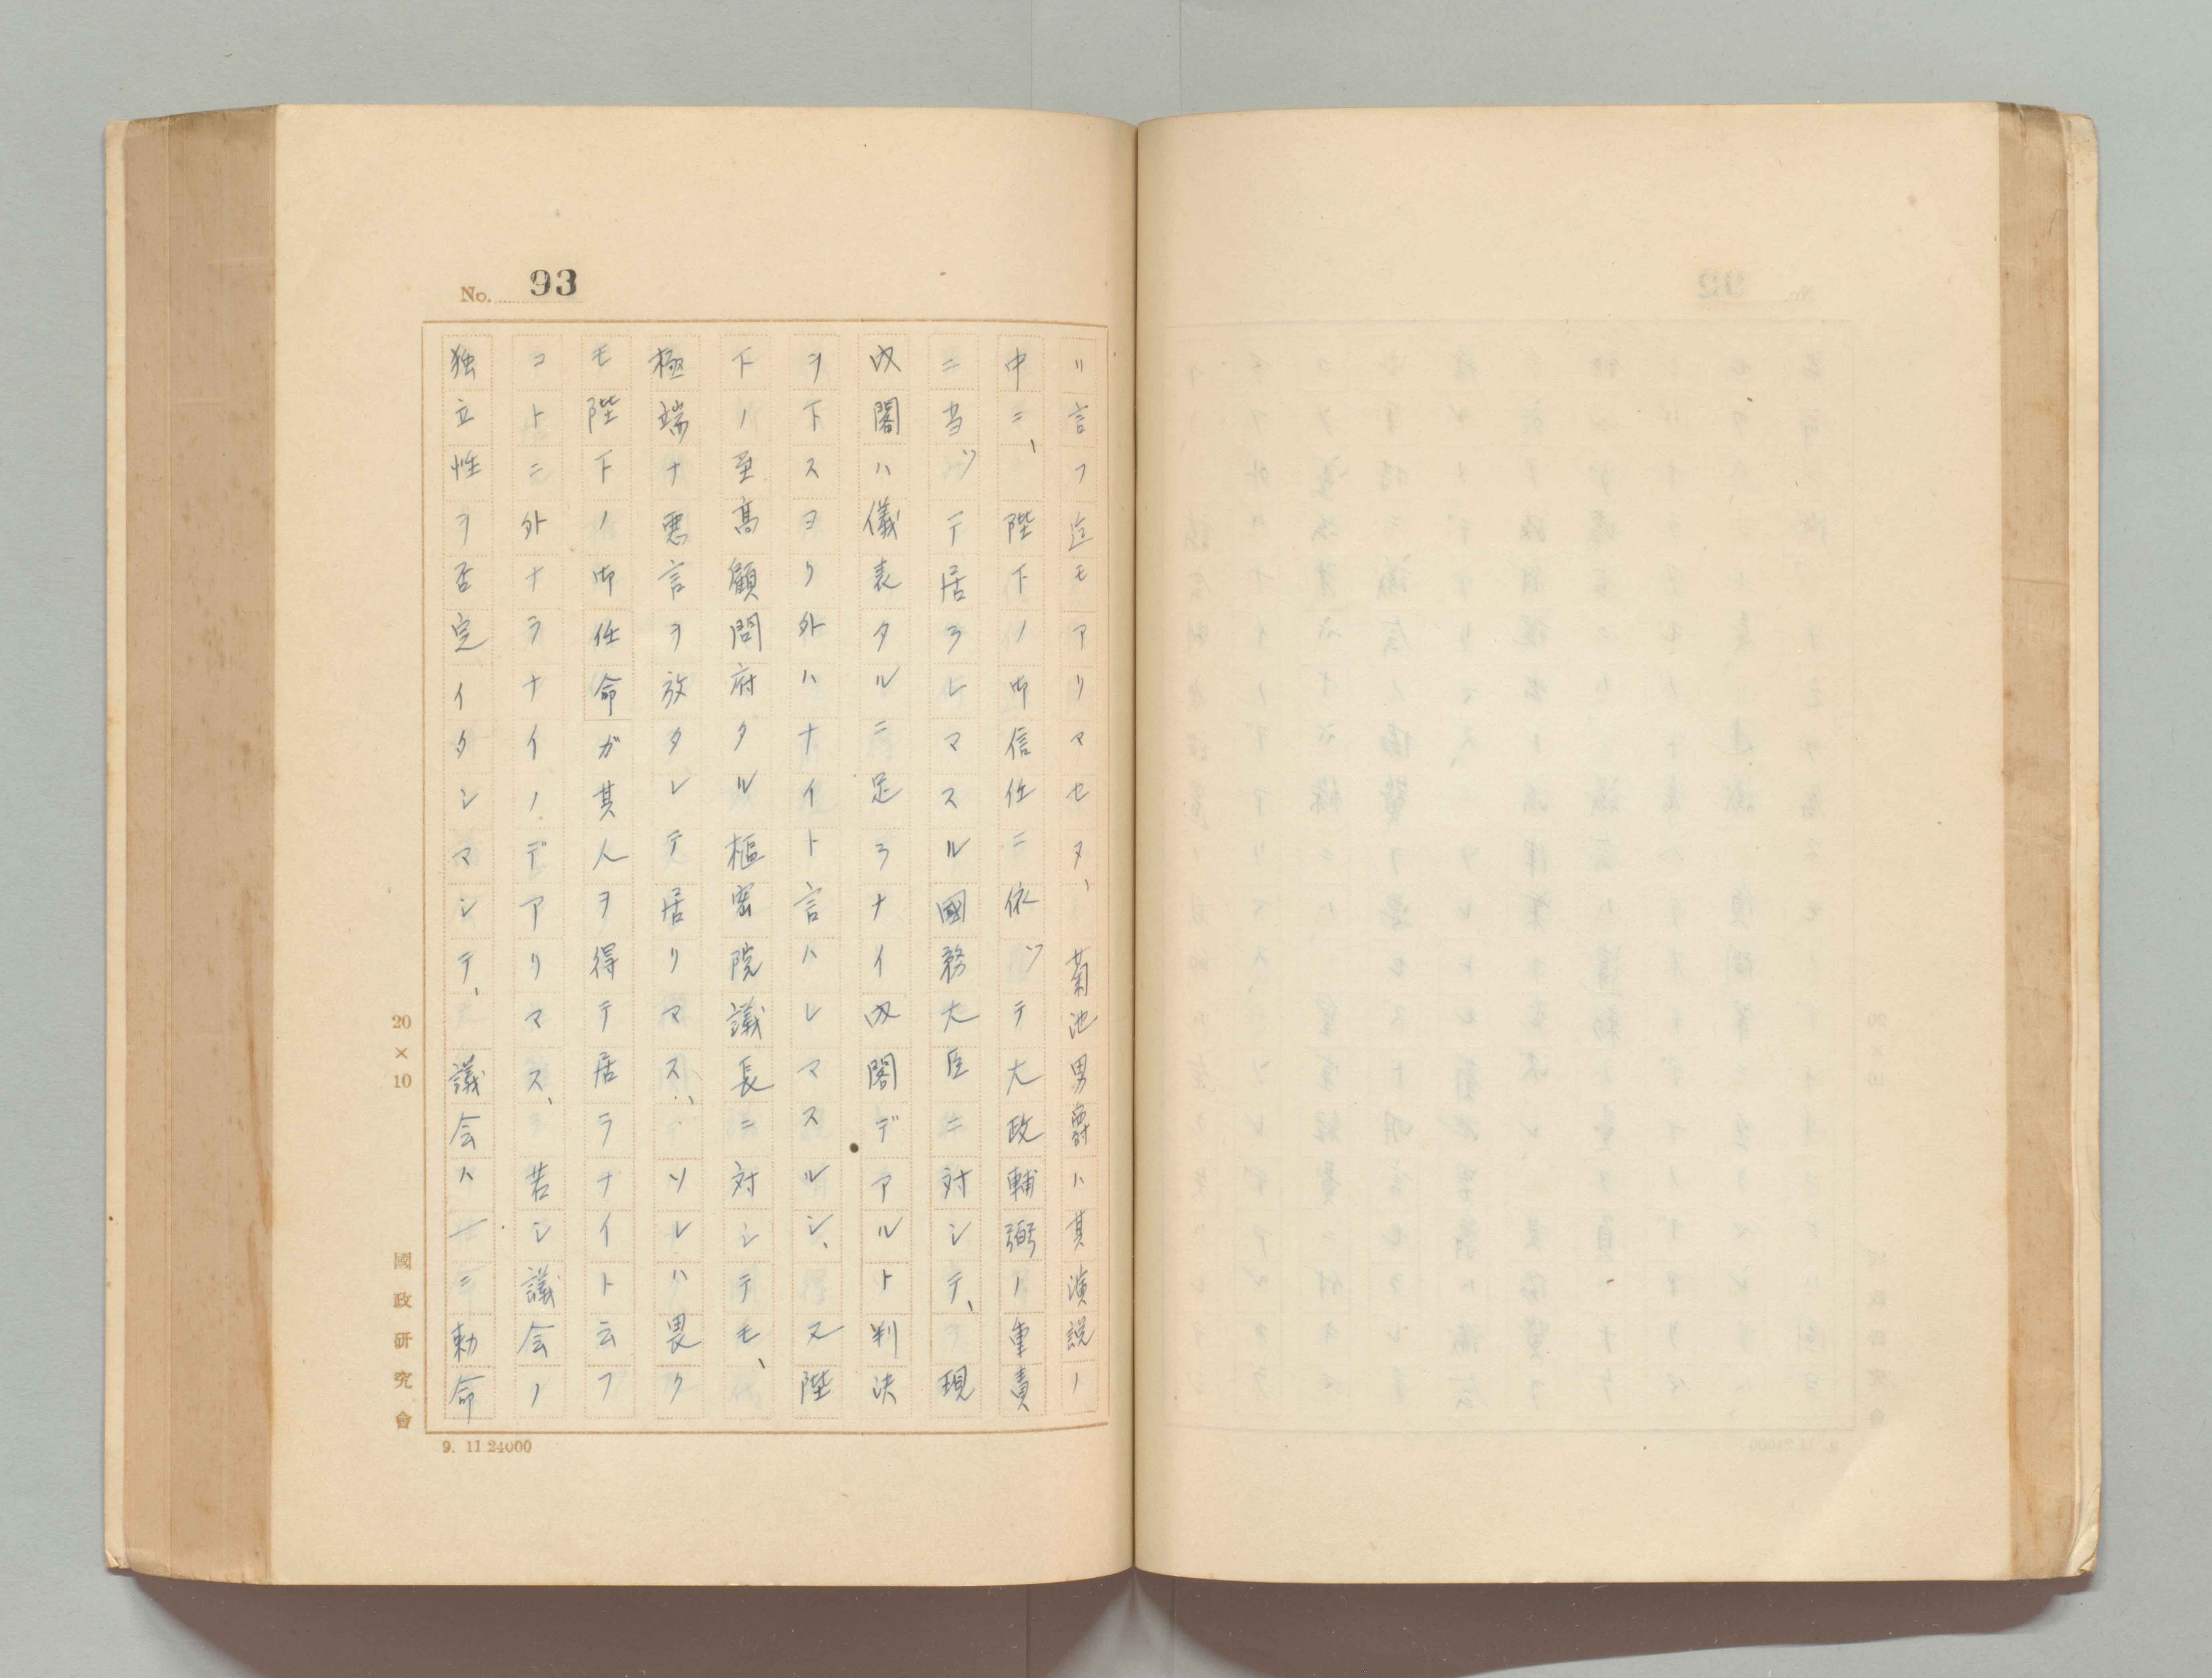 No. 93
リ言フ迄モアリマセヌ、菊池男爵ハ其演説ノ
中ニ、陛下ノ御信任ニ依ッテ大政輔弼ノ重責
ニ当ッテ居ラレマスル國務大臣ニ対シテ、現
内閣ハ儀表タルニ足ラナイ内閣デアルト判決
ヲ下スヨリ外ハナイト言ハレマスルシ、又陛
下ノ至高顧問府タル枢密院議長ニ対シテモ、
極端ナ悪言ヲ放タレテ居リマス、ソレハ畏ク
モ陛下ノ御任命ガ其人ヲ得テ居ラナイト云フ
コトニ外ナラナイノデアリマス、若シ議会ノ
独立性ヲ否定イタシマシテ、議会ハ一ニ勅命
20×10
國政研究會
9. 11 24000